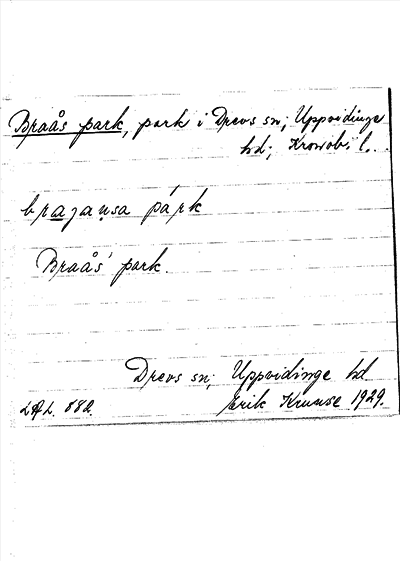 Braås park, park i Drevs sn; Uppvidinge
hd; Kronob. l.
park
Braås' park.
Drevs sn; Uppvidinge hd.
LAL. 882. Erik Kruuse 1929.